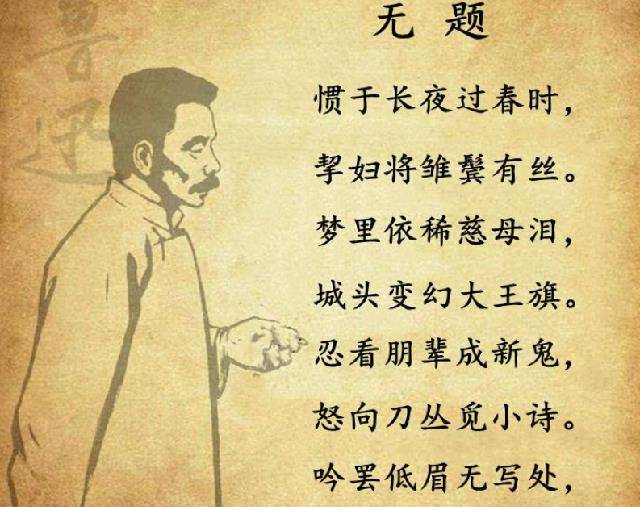 鲁迅
无题
惯于长夜过春时，
挈妇将雏鬓有丝。
梦里依稀慈母泪，
城头变幻大王旗。
忍看朋辈成新鬼，
怒向刀丛觅小诗。
吟罢低眉无写处，